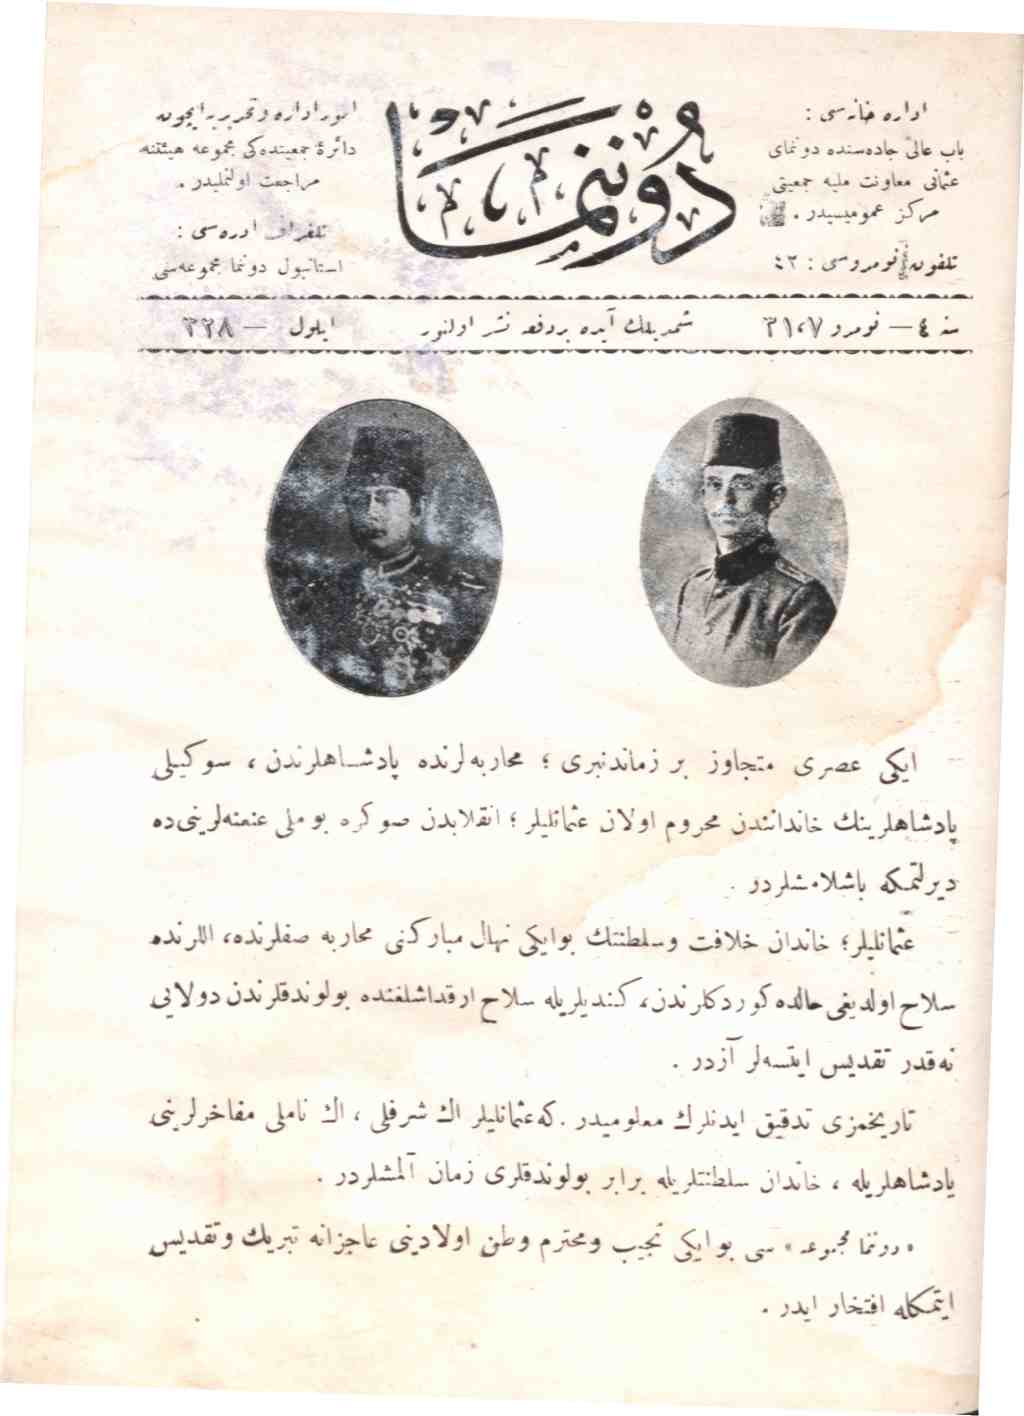 اداره خانه‌سی :
باب عالی جاده‌سنده دونمای
عثمانی معاونت ملیه جمعیتی
مرکز عمومیسیدر .
تلفون نومروسی : ٤٣
دوننما
امور اداره و تحریریه ایچون
دائرهٔ جمعیتده‌کی مجموعه هیئتنه
مراجعت اولنملیدر .
تلغراف ادره‌سی :
استانبول دونما مجموعه‌سی
سنه ٤ — نومرو
شمدیلك آیده بر دفعه نشر اولنور
ایلول — ٣٢٨
ایکی عصری متجاوز بر زماندنبری ؛ محاربه‌لرنده پادشاهلرندن ، سوکیلی
پادشاهلرینك خاندانندن محروم اولان عثمانلیلر ؛ انقلابدن صوکره بو ملی عنعنه‌لرینی ده
دیرلتمکه باشلامشلردر .
عثمانلیلر ؛ خاندان خلافت وسلطنتك بو ایکی نهال مبارکنی محاربه صفلرنده ، اللرنده
سلاح اولدیغی حالده کوردکلرندن ، کندیلریله سلاح ارقداشلغنده بولوندقلرندن دولایی
نه‌قدر تقدیس ایتسه‌لر آزدر .
تاریخمزی تدقیق ایدنلرك معلومیدر . که عثمانلیلر اك شرفلی ، اك ناملی مفاخرلرینی
پادشاهلریله ، خاندان سلطنتلریله برابر بولوندقلری زمان آلمشلردر .
« دونما مجموعه » سی بو ایکی نجیب ومحترم وطن اولادینی عاجزانه تبریك وتقدیس
ایتمکله افتخار ایدر .